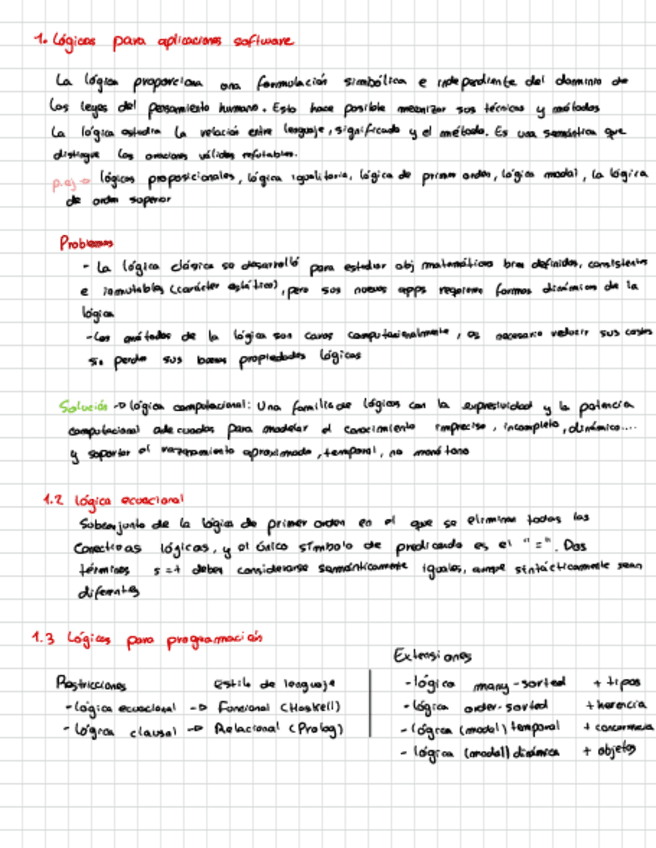 1. Lógicas para aplicaciones software
La lógica proporciona una formulación simbólica e independiente del dominio de
las leyes del pensamiento humano. Esto hace posible mecanizar sus técnicas y métodos
La lógica estudia la relación entre lenguaje, significado y el método. Es una semántica que
distingue las oraciones válidas refutables.
p.ej → lógicas proposicionales, lógica igualitaria, lógica de primer orden, lógica modal, la lógica
de orden superior
Problemas
- La lógica clásica se desarrolló para estudiar obj matemáticos bien definidos, consistentes
e inmutables (carácter estático), pero sus nuevas apps requieren formas dinámicas de la
lógica
- Los métodos de la lógica son caros computacionalmente, es necesario reducir sus costes
si perder sus buenas propiedades lógicas
Solución → lógica computacional: Una familia de lógicas con la expresividad y la potencia
computacional adecuadas para modelar el conocimiento impreciso, incompleto, dinámico....
y soportar el razonamiento aproximado, temporal, no monótono
1.2 lógica ecuacional
Subconjunto de la lógica de primer orden en el que se eliminan todas las
conectivas lógicas, y el único símbolo de predicado es el "=". Dos
términos s=t deben considerarse semánticamente iguales, aunque sintácticamente sean
diferentes
1.3 Lógicas para programación
Restricciones estilo de lenguaje
- lógica ecuacional → Funcional (Haskell)
- lógica clausal → Relacional (Prolog)
Extensiones
- lógica many-sorted + tipos
- lógica order-sorted + herencia
- lógica (modal) temporal + concurrencia
- lógica (modal) dinámica + objetos